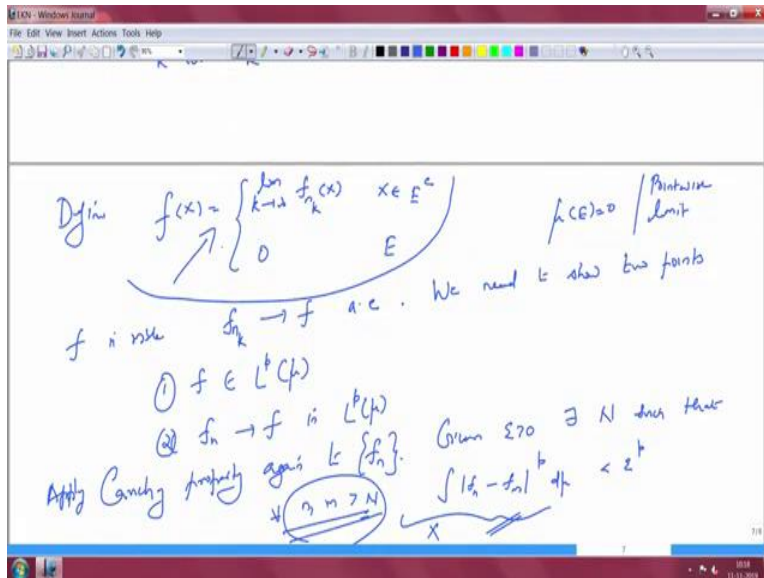 EKN - Windows Journal
File Edit View Insert Actions Tools Help
Define f(x) = { lim k→∞ f_{n_k}(x) x ∈ E^c
0 E
μ(E)=0 / Pointwise limit
f is mble f_{n_k} → f a.e. We need to show two points
① f ∈ L^p(μ)
② f_n → f in L^p(μ)
Apply Cauchy property again to {f_n}. Given ε>0 ∃ N such that
∫_X |f_n - f_m|^p dμ < ε^p
∀ n, m > N
7
7/9
10:18
11-11-2019